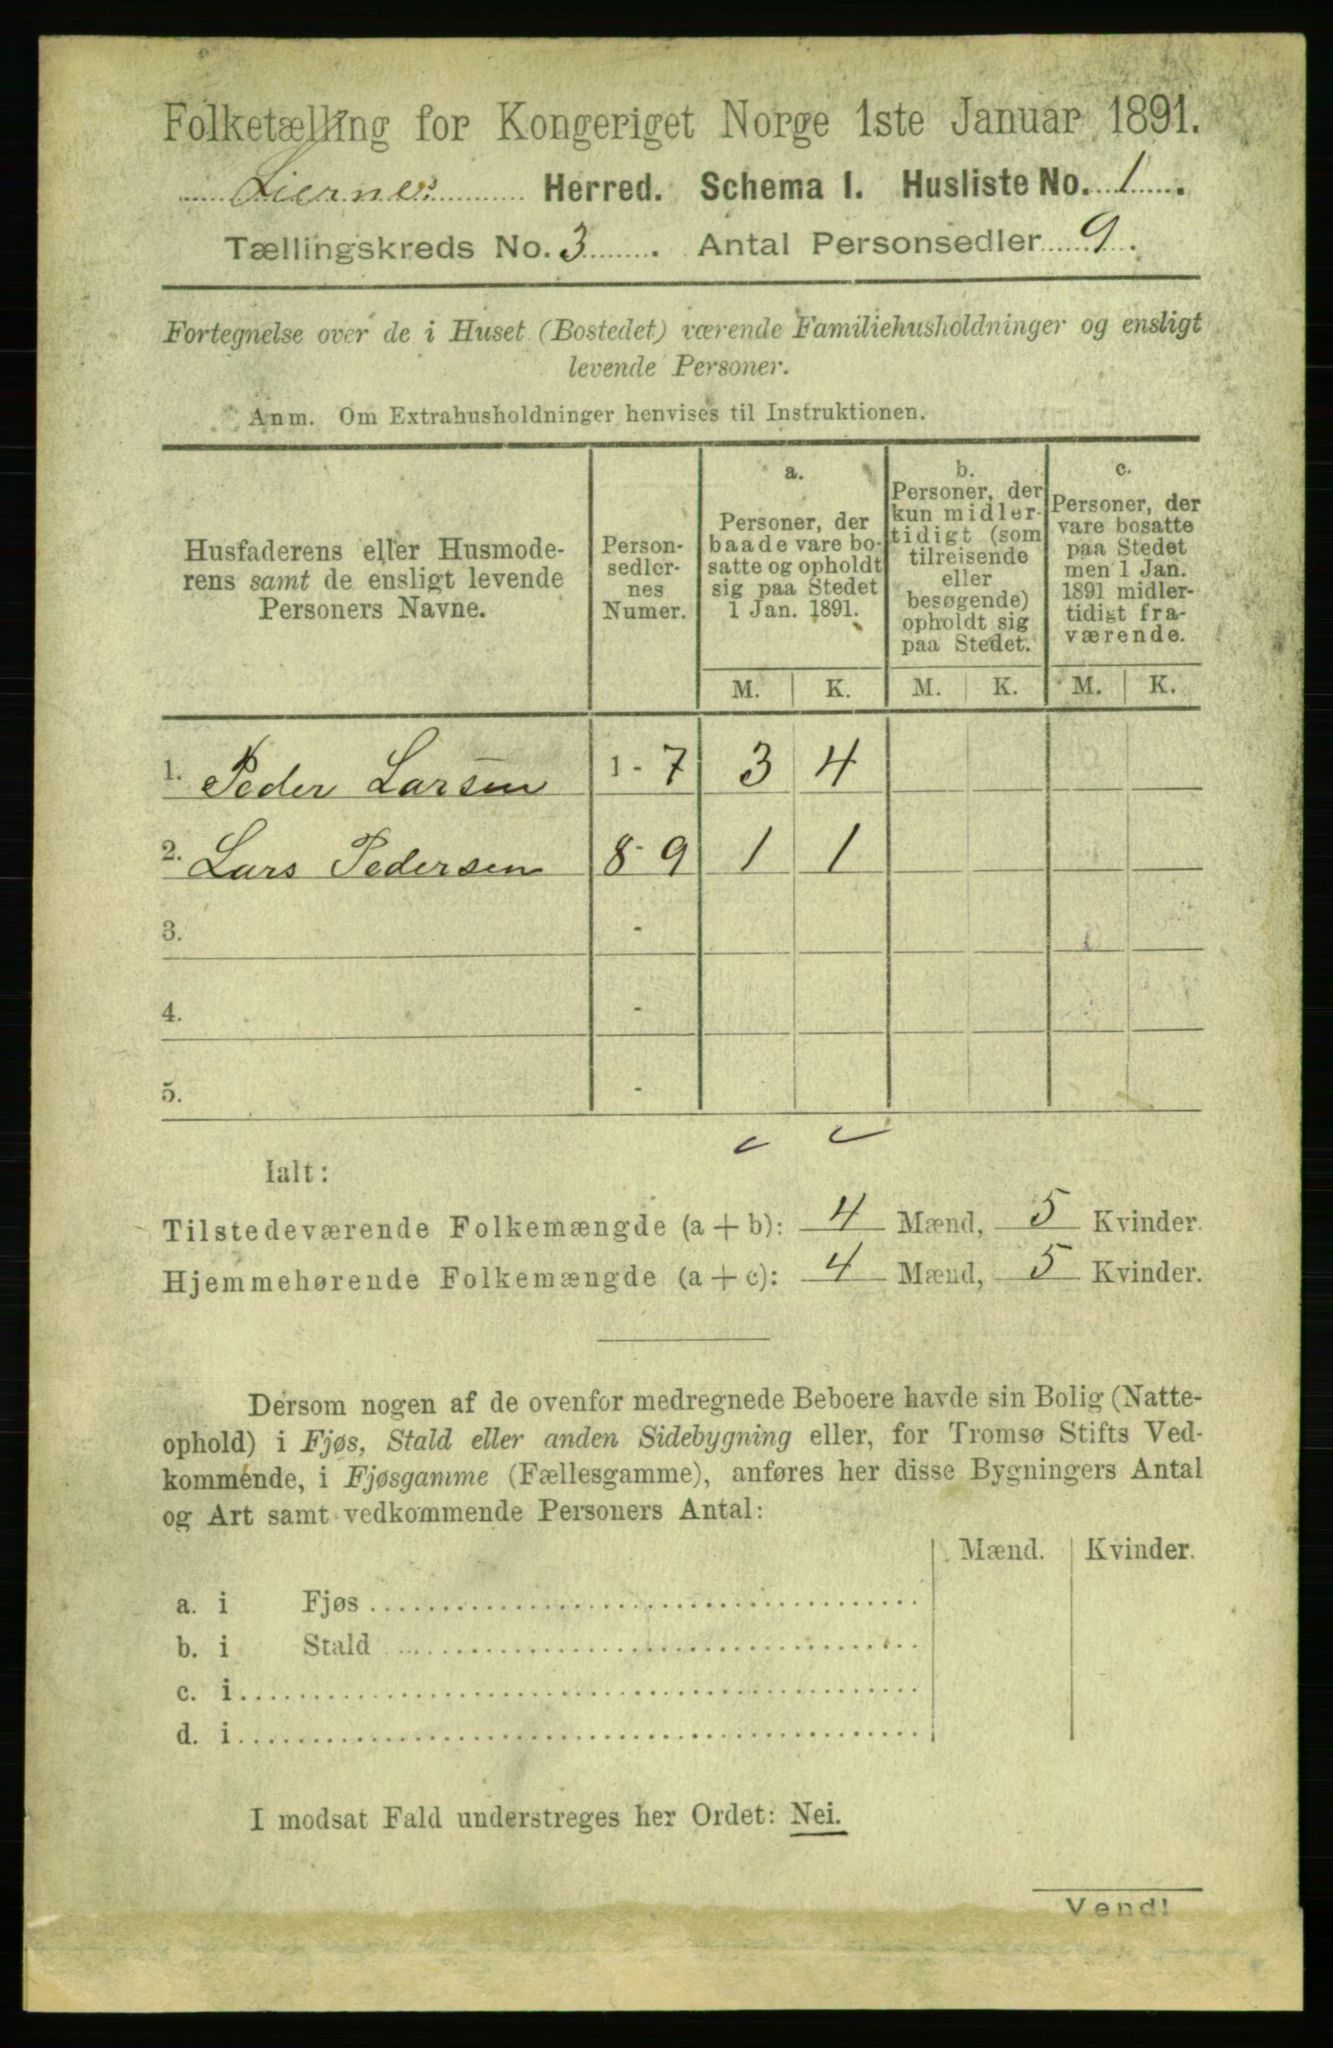 Folketælling for Kongeriget Norge 1ste Januar 1891.
Lierne Herred. Schema 1. Husliste No. 1.
Tællingskreds No. 3. Antal Personsedler 9.
Fortegnelse over de i Huset (Bostedet) værende Familiehusholdninger og ensligt
levende Personer.
Anm. Om Extrahusholdninger henvises til Instruktionen.
Husfaderens eller Husmode-
rens samt de ensligt levende
Personers Navne.
Person-
sedler-
nes
Numer.
a.
Personer, der
baade vare bo-
satte og opholdt
sig paa Stedet
1 Jan. 1891.
b.
Personer, der
kun midler-
tidigt (som
tilreisende
eller
besøgende)
opholdt sig
paa Stedet.
c.
Personer, der
vare bosatte
paa Stedet
men 1 Jan.
1891 midler-
tidigt fra-
værende.
M. K. M. K. M. K.
1. Peder Larsen 1 - 7 3 4
2. Lars Pedersen 8 - 9 1 1
3. -
4. -
5. -
Ialt:
Tilstedeværende Folkemængde (a + b): 4 Mænd, 5 Kvinder.
Hjemmehørende Folkemængde (a + c): 4 Mænd, 5 Kvinder.
Dersom nogen af de ovenfor medregnede Beboere havde sin Bolig (Natte-
ophold) i Fjøs, Stald eller anden Sidebygning eller, for Tromsø Stifts Ved-
kommende, i Fjøsgamme (Fællesgamme), anføres her disse Bygningers Antal
og Art samt vedkommende Personers Antal:
Mænd. Kvinder.
a. i Fjøs
b. i Stald
c. i
d. i
I modsat Fald understreges her Ordet: Nei.
Vend!